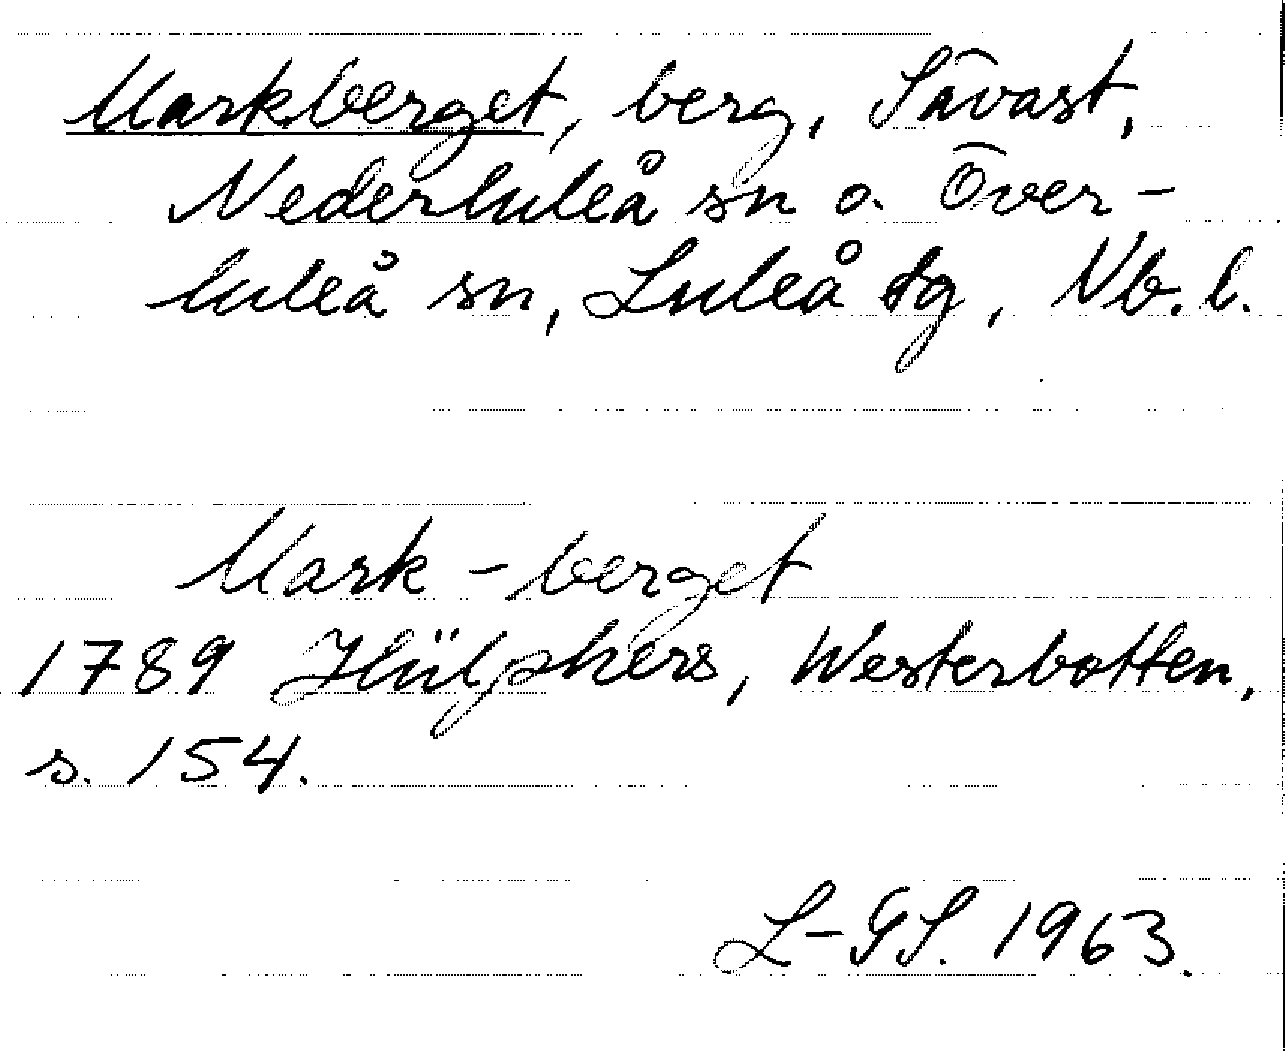 Markberget, berg, Sävast,
Nederluleå sn o. Över-
luleå sn, Luleå tg, Nb. l.
Mark-berget
1789 Hülphers, Westerbotten,
s. 154.
L-GS. 1963.